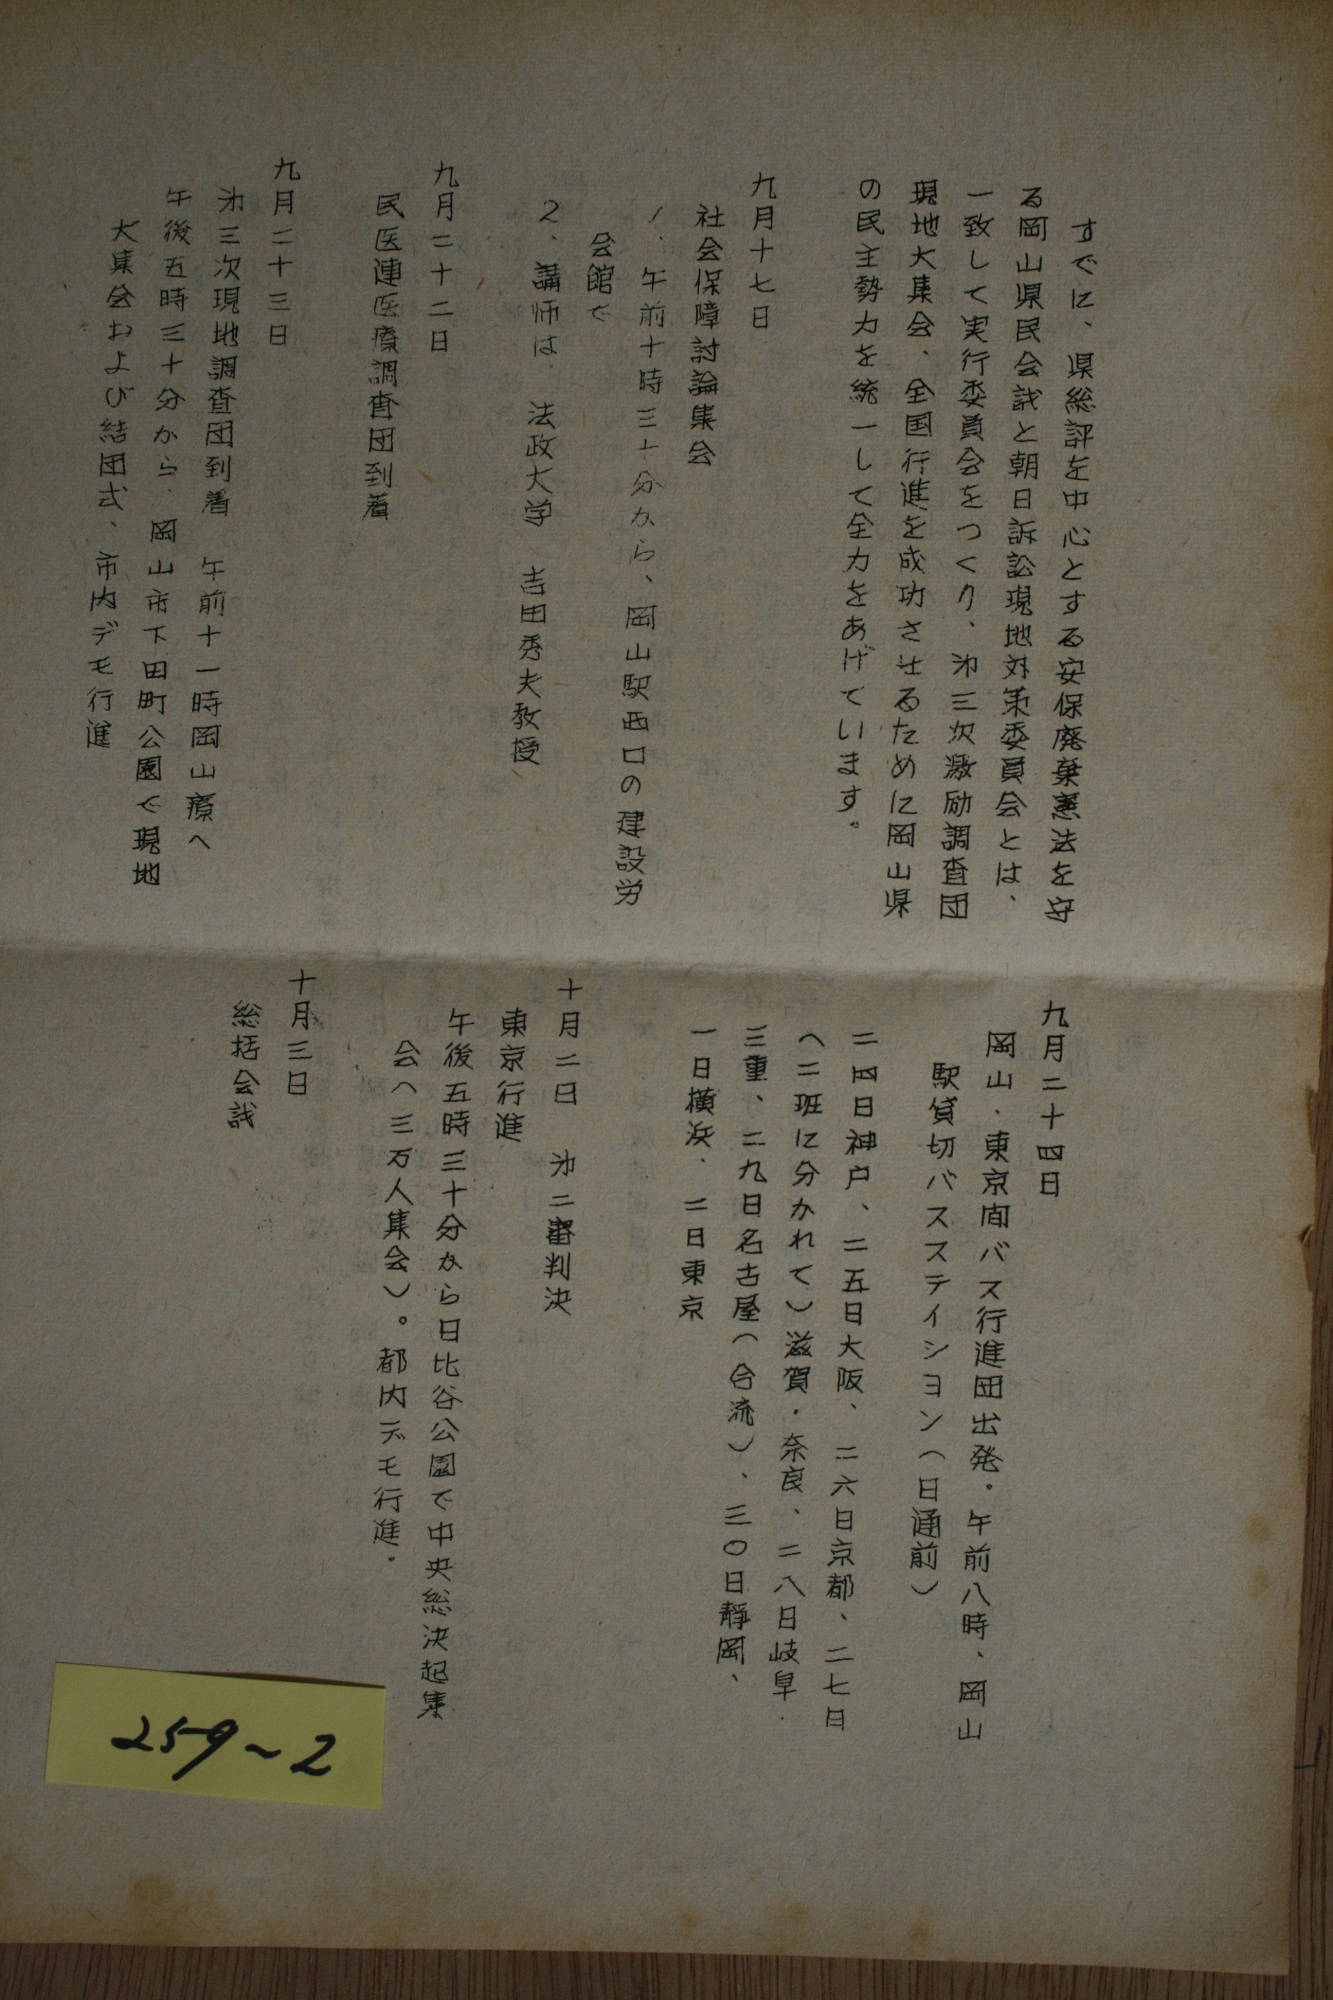 すでに、県総評を中心とする安保廃棄憲法を守
る岡山県民会議と朝日訴訟現地対策委員会とは、
一致して実行委員会をつくり、㐧三次激励調査団
現地大集会、全国行進を成功させるために岡山県
の民主勢力を統一して全力をあげています。
九月十七日
社会保障討論集会
1、午前十時三十分から、岡山駅西口の建設労
会館で
2、講師は、法政大学 吉田秀夫教授
九月二十二日
民医連医療調査団到着
九月二十三日
㐧三次現地調査団到着 午前十一時岡山療へ
午後五時三十分から、岡山市下田町公園で現地
大集会および結団式、市内デモ行進
九月二十四日
岡山・東京間バス行進団出発。午前八時、岡山
駅貸切バスステイション(日通前)
二四日神戸、二五日大阪、二六日京都、二七日
(二班に分かれて)滋賀・奈良、二八日岐阜・
三重、二九日名古屋(合流)、三〇日静岡、
一日横浜、二日東京
十月二日 㐧二審判決
東京行進
午後五時三十分から日比谷公園で中央総決起集
会(三万人集会)。都内デモ行進。
十月三日
総括会議
259~2